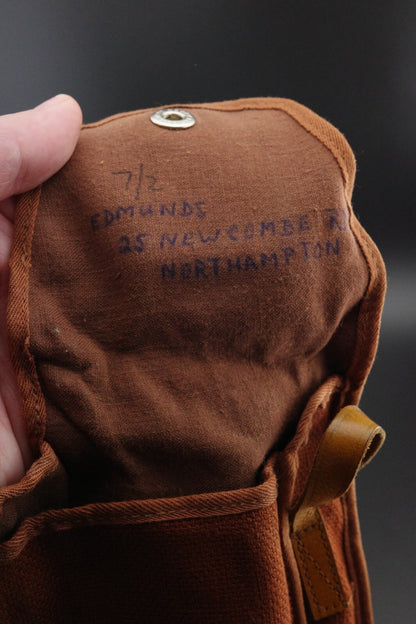 7/2
EDMUNDS
25 NEWCOMBE R
NORTHAMPTON